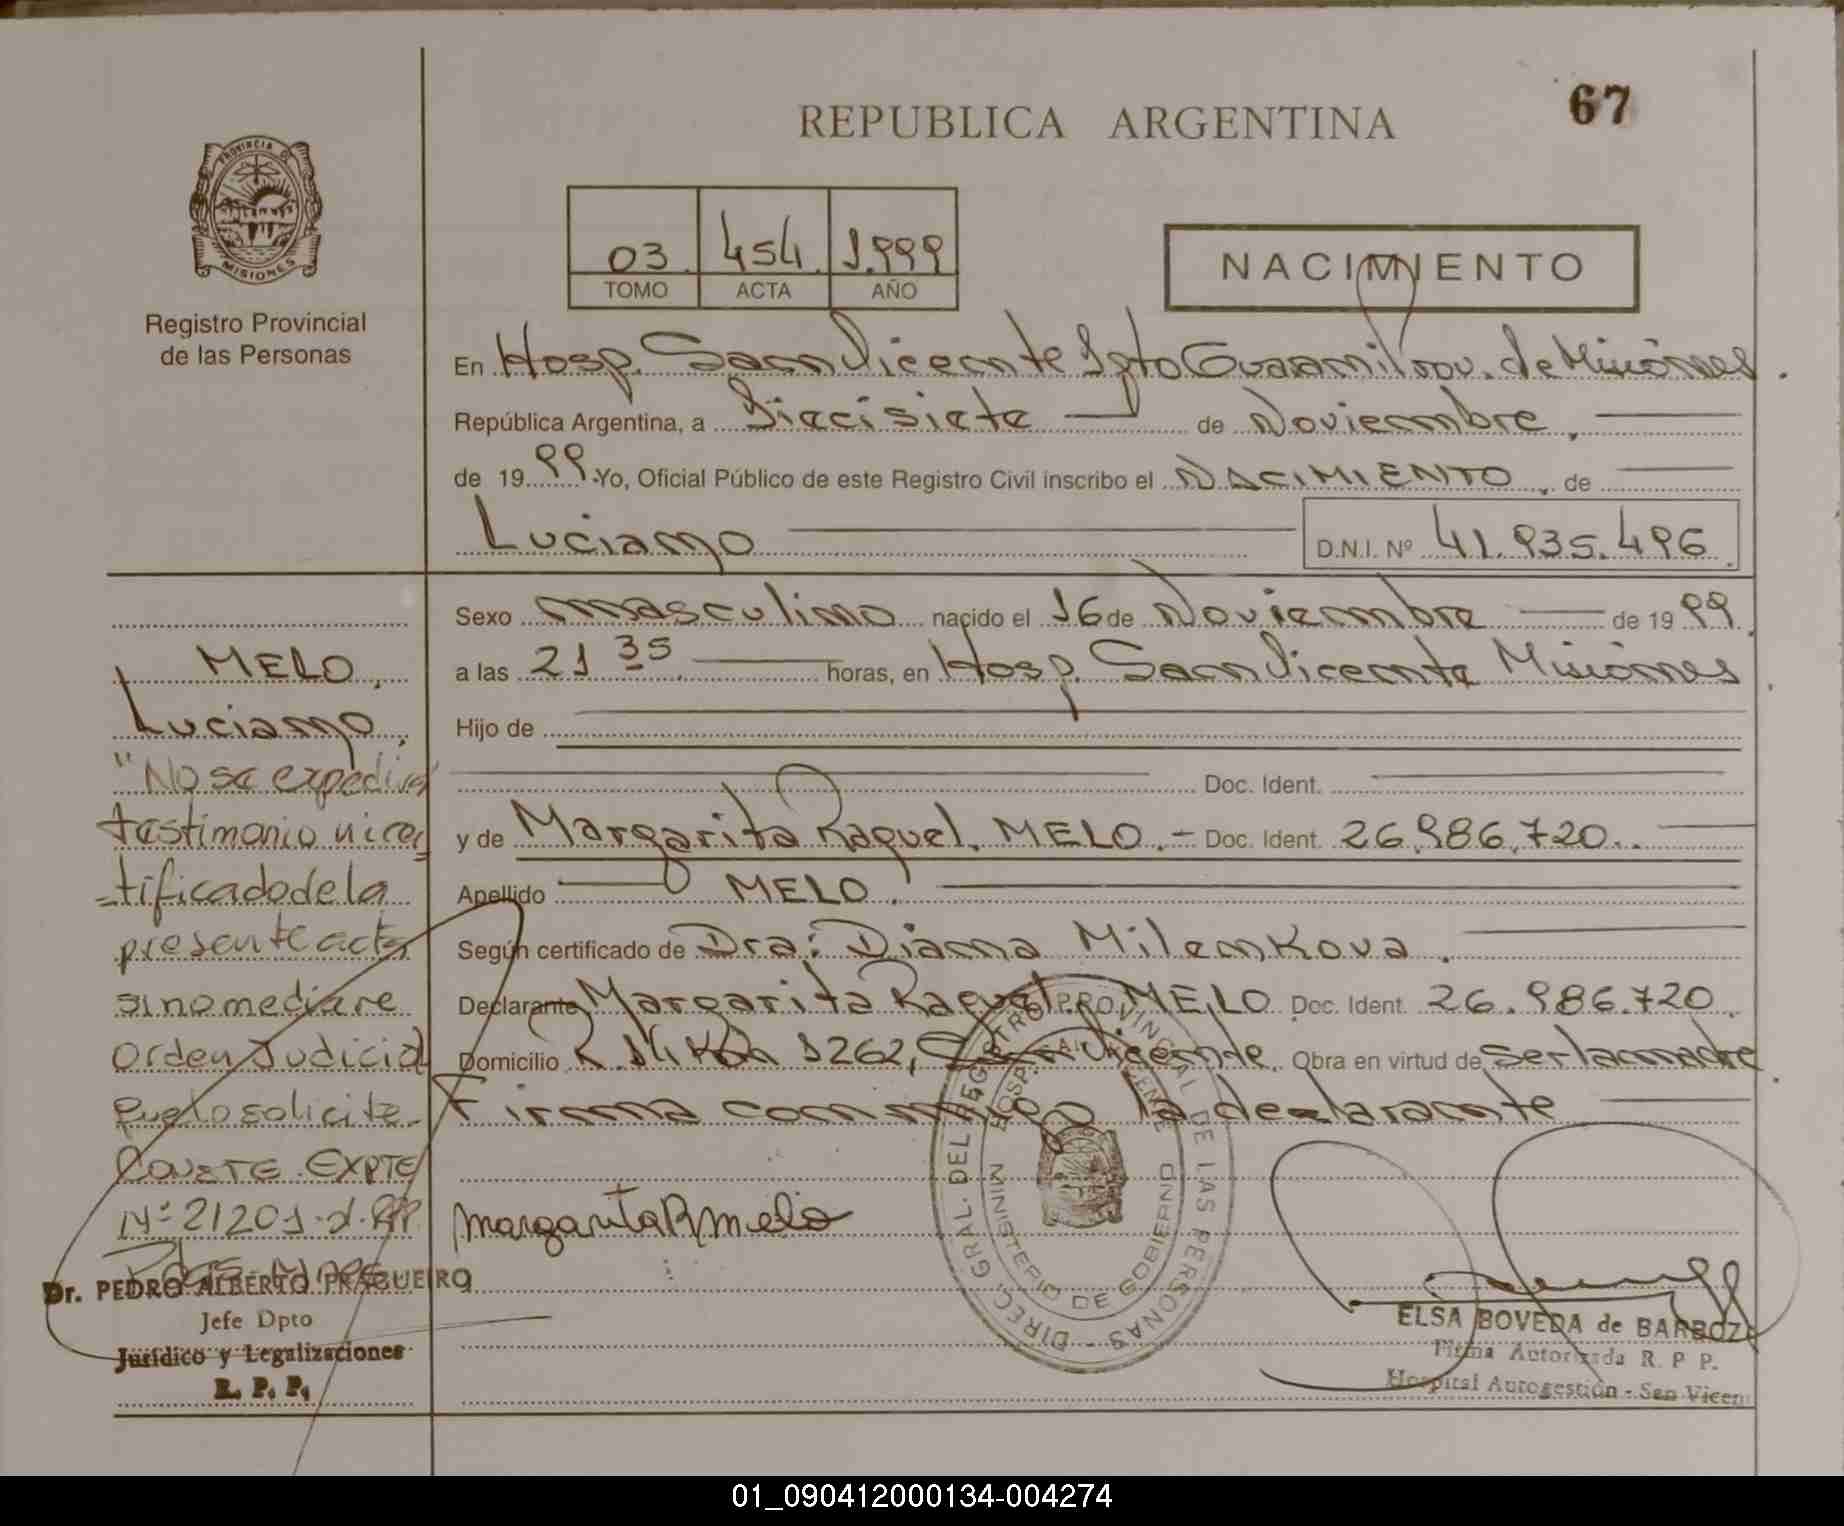 67
REPUBLICA ARGENTINA
PROVINCIA DE
MISIONES
Registro Provincial
de las Personas
03 454 1.999
TOMO ACTA AÑO
NACIMIENTO
En Hosp. San Vicente Dpto Guaraní Prov. de Misiones.
República Argentina, a Diecisiete de Noviembre.
de 1999. Yo, Oficial Público de este Registro Civil inscribo el NACIMIENTO, de
Luciano D.N.I. Nº 41.935.496.
Sexo masculino nacido el 16 de Noviembre de 1999.
a las 21 35 horas, en Hosp. San Vicente Misiones.
Hijo de
Doc. Ident.
y de Margarita Raquel. MELO.- Doc. Ident. 26.986.720..
Apellido MELO.
Según certificado de Dra: Diana Milenkova.
Declarante Margarita Raquel MELO Doc. Ident. 26.986.720.
Domicilio 1262, San Vicente. Obra en virtud de ser la madre.
Firma conmigo la declarante
Margarita R melo
MELO,
Luciano.
"No se expedirá
testimonio ni cer
=tificado de la
presente acta
si no mediare
Orden Judicial
que lo solicite.
EXPTE
Nº 21201
Dr. PEDRO ALBERTO PRAGUEIRO
Jefe Dpto
Jurídico y Legalizaciones
R. P. P.
DIREC. GRAL. DEL REGISTRO PROVINCIAL DE LAS PERSONAS -
HOSP. SAN VICENTE
MINISTERIO DE GOBIERNO
ELSA BOVEDA de BARBOZA
Firma Autorizada R. P. P.
Hospital Autogestión - San Vicen
01_090412000134-004274